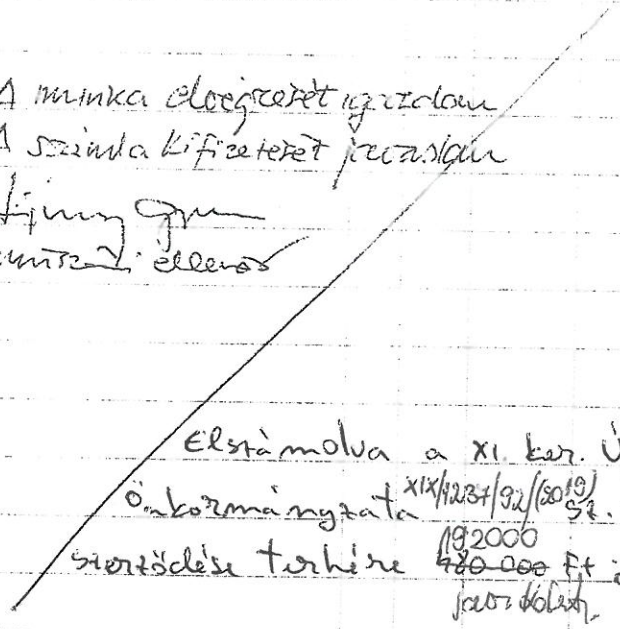 A munka elvégzését igazolom
A számla kifizetését javaslom
műszaki ellenőr
Elszámolva a XI. ker. Ú
Önkormányzata XIX/1237/92/(5019) sz.
192000
szerződése terhére 480 000 Ft